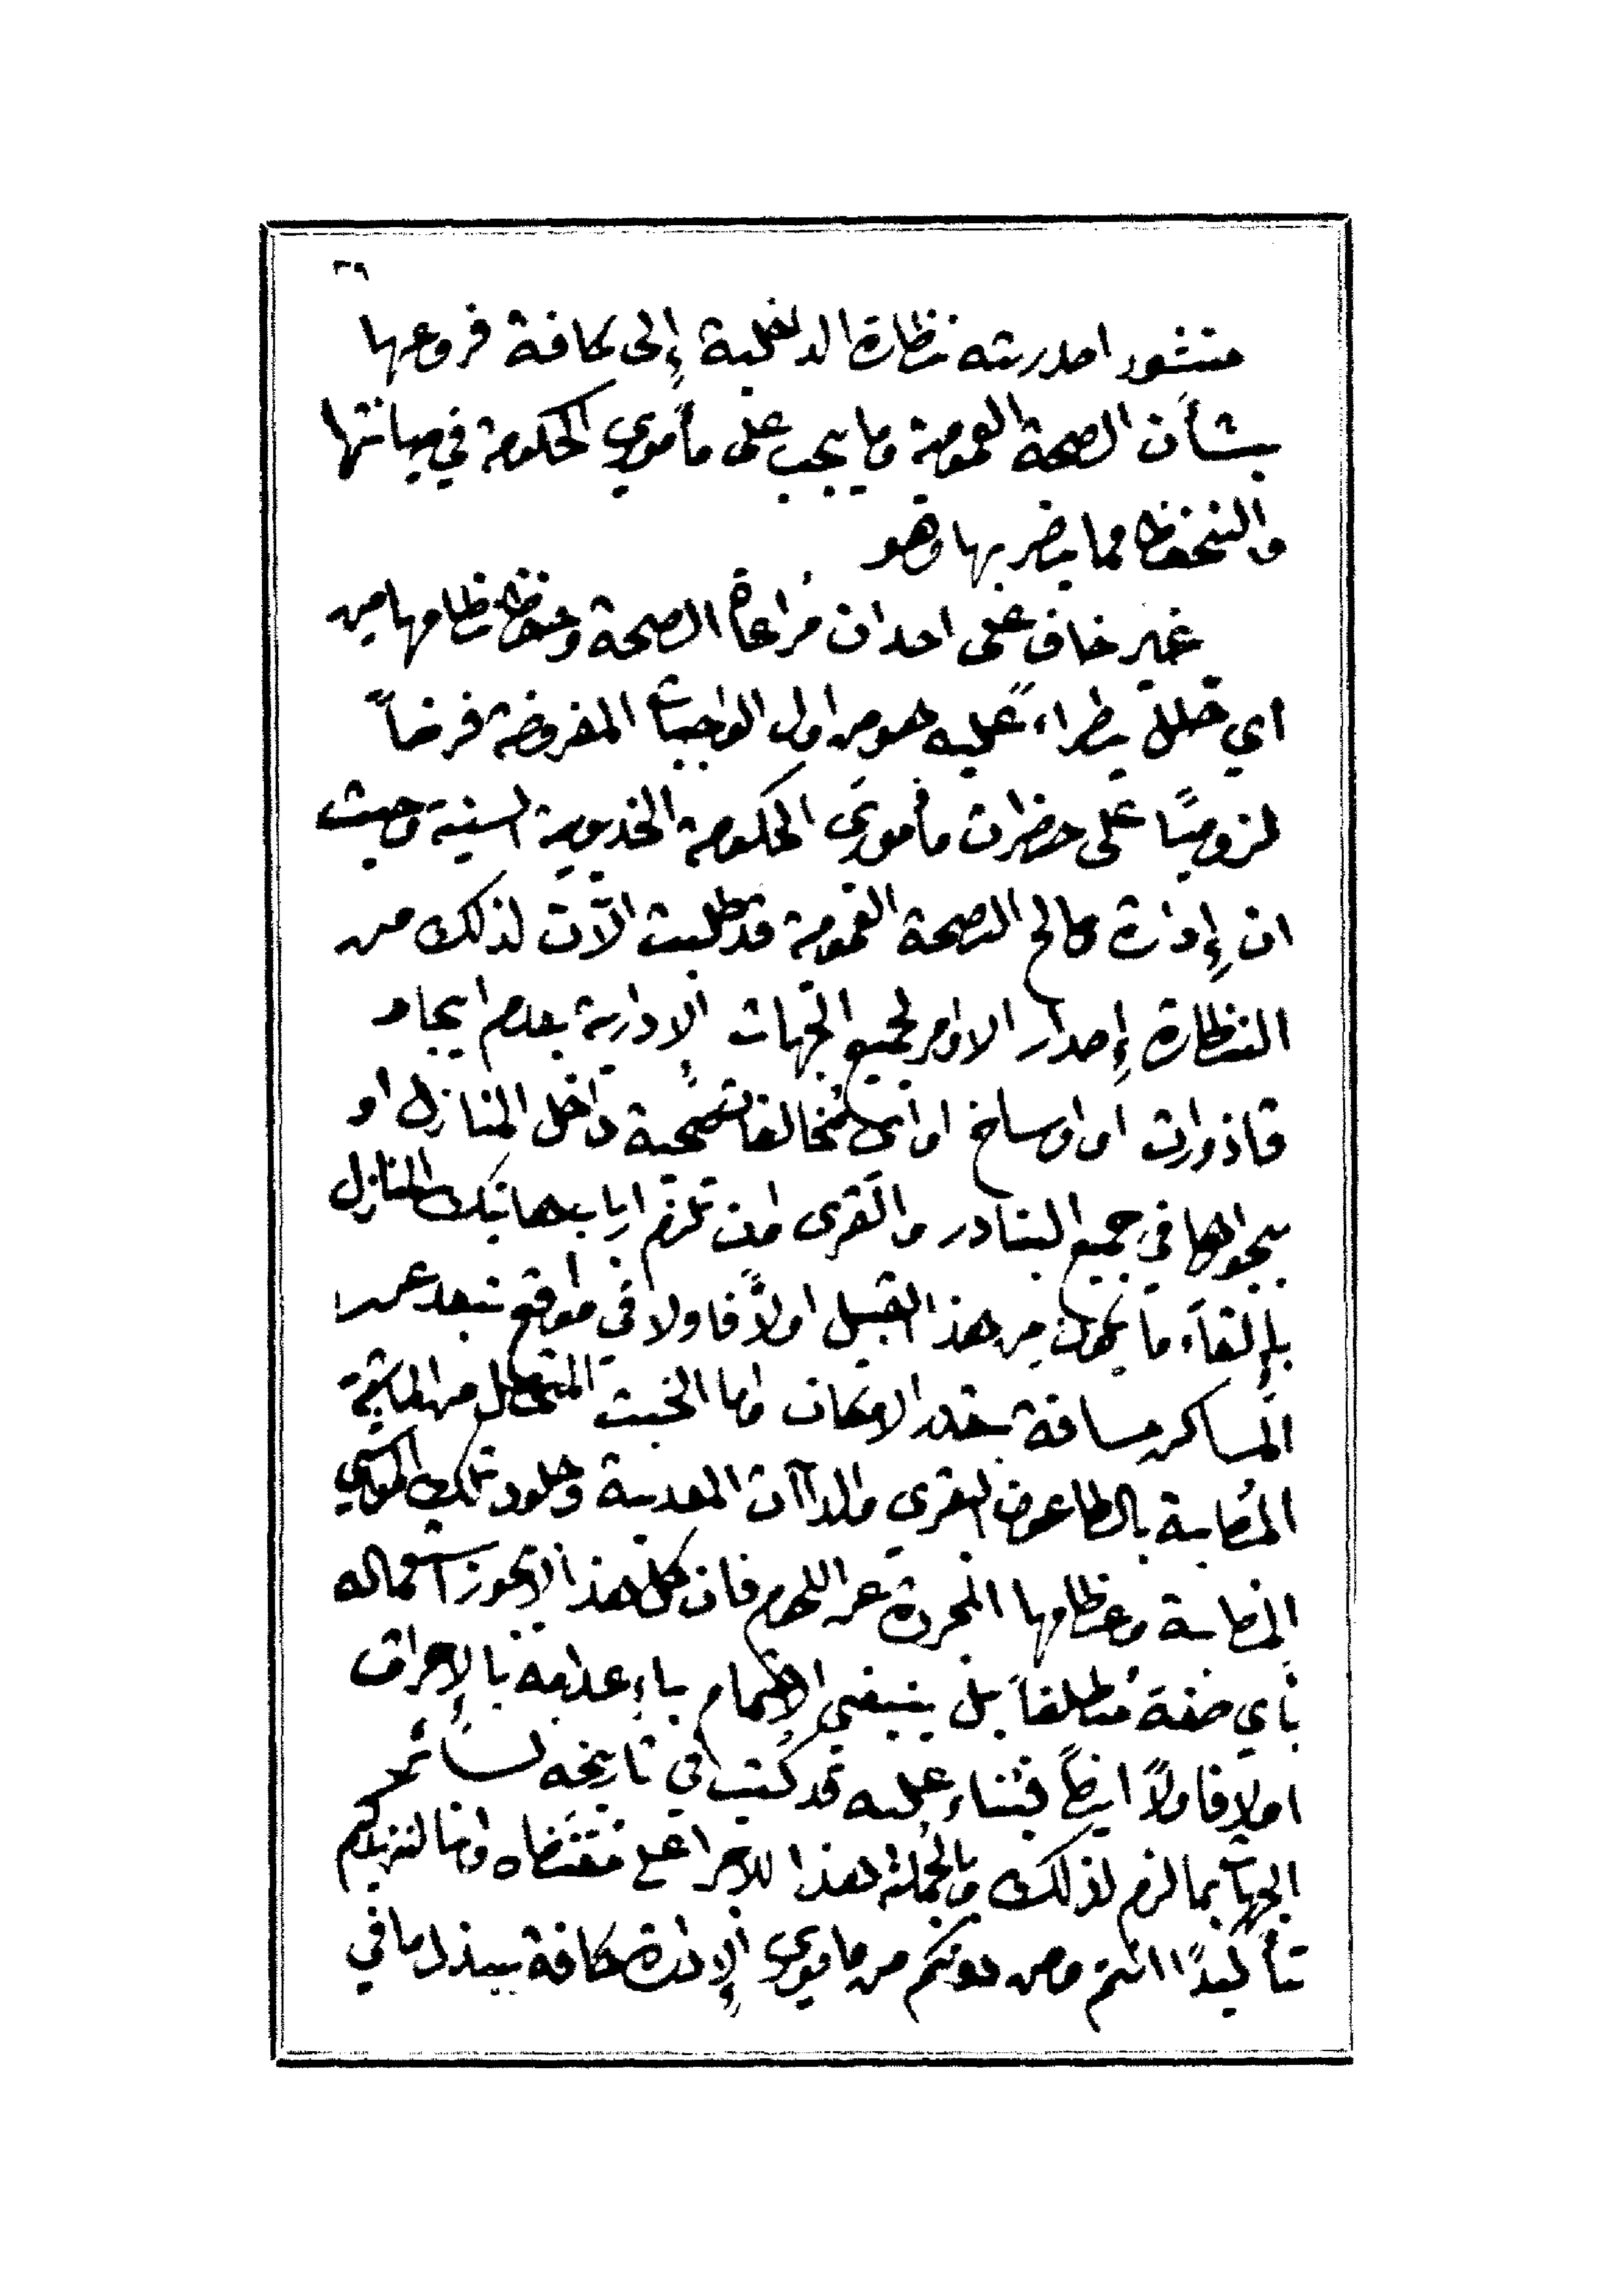 ٦٩
منشور اصدرته نظارة الداخلية إلى كافة فروعها
بشأن الصحة العمومية وما يجب على مأموري الحكومة في صيانتها
والتحفظ مما يضر بها وهو
غير خاف على احد ان مُراعاة الصحة وحفظ نظامها من
اي خلل يطراء عليه هو من اول الواجبات المفروضة فرضاً
لزوميًا على حضرات مأموري الحكومة الخديوية السنية وحيث
ان إدارة مصالح الصحة العمومية قد طلبت الآن لذلك من
النظارة إصدار الاوامر لجميع الجهات الإدارية بعدم ايجاد
قاذورات او اوساخ او اى مُخالفات صحية داخل المنازل او
بجوارها في جميع البنادر والقرى وان تلزم اربابها تيك المنازل
بإلقاء ما يكون من هذا القبيل اولاً فاولا في مواقع تبعد عن
المساكن مسافة بقدر الامكان واما الخبث المتحصل من الماشية
المُصابة بالطاعون البقري والداآت المعدية وجلود تلك المواشي
المصابة وعظامها المجردة عن اللحم فان كل هذا لايجوز استعماله
بأي صفة مُطلقاً بل ينبغي الاهتمام باءِعدامه بالإحراق
اولا فاولاً ايضاً فبناء عليه قد كُتب في تاريخه لسائر
الجهات بما لزم لذلك وبالجملة هذا للاجرا على مقتضاه واننا لنزيدكم
تأكيدًا انتم ومن دونكم من مأموري الإدارة كافة ببذل ما في